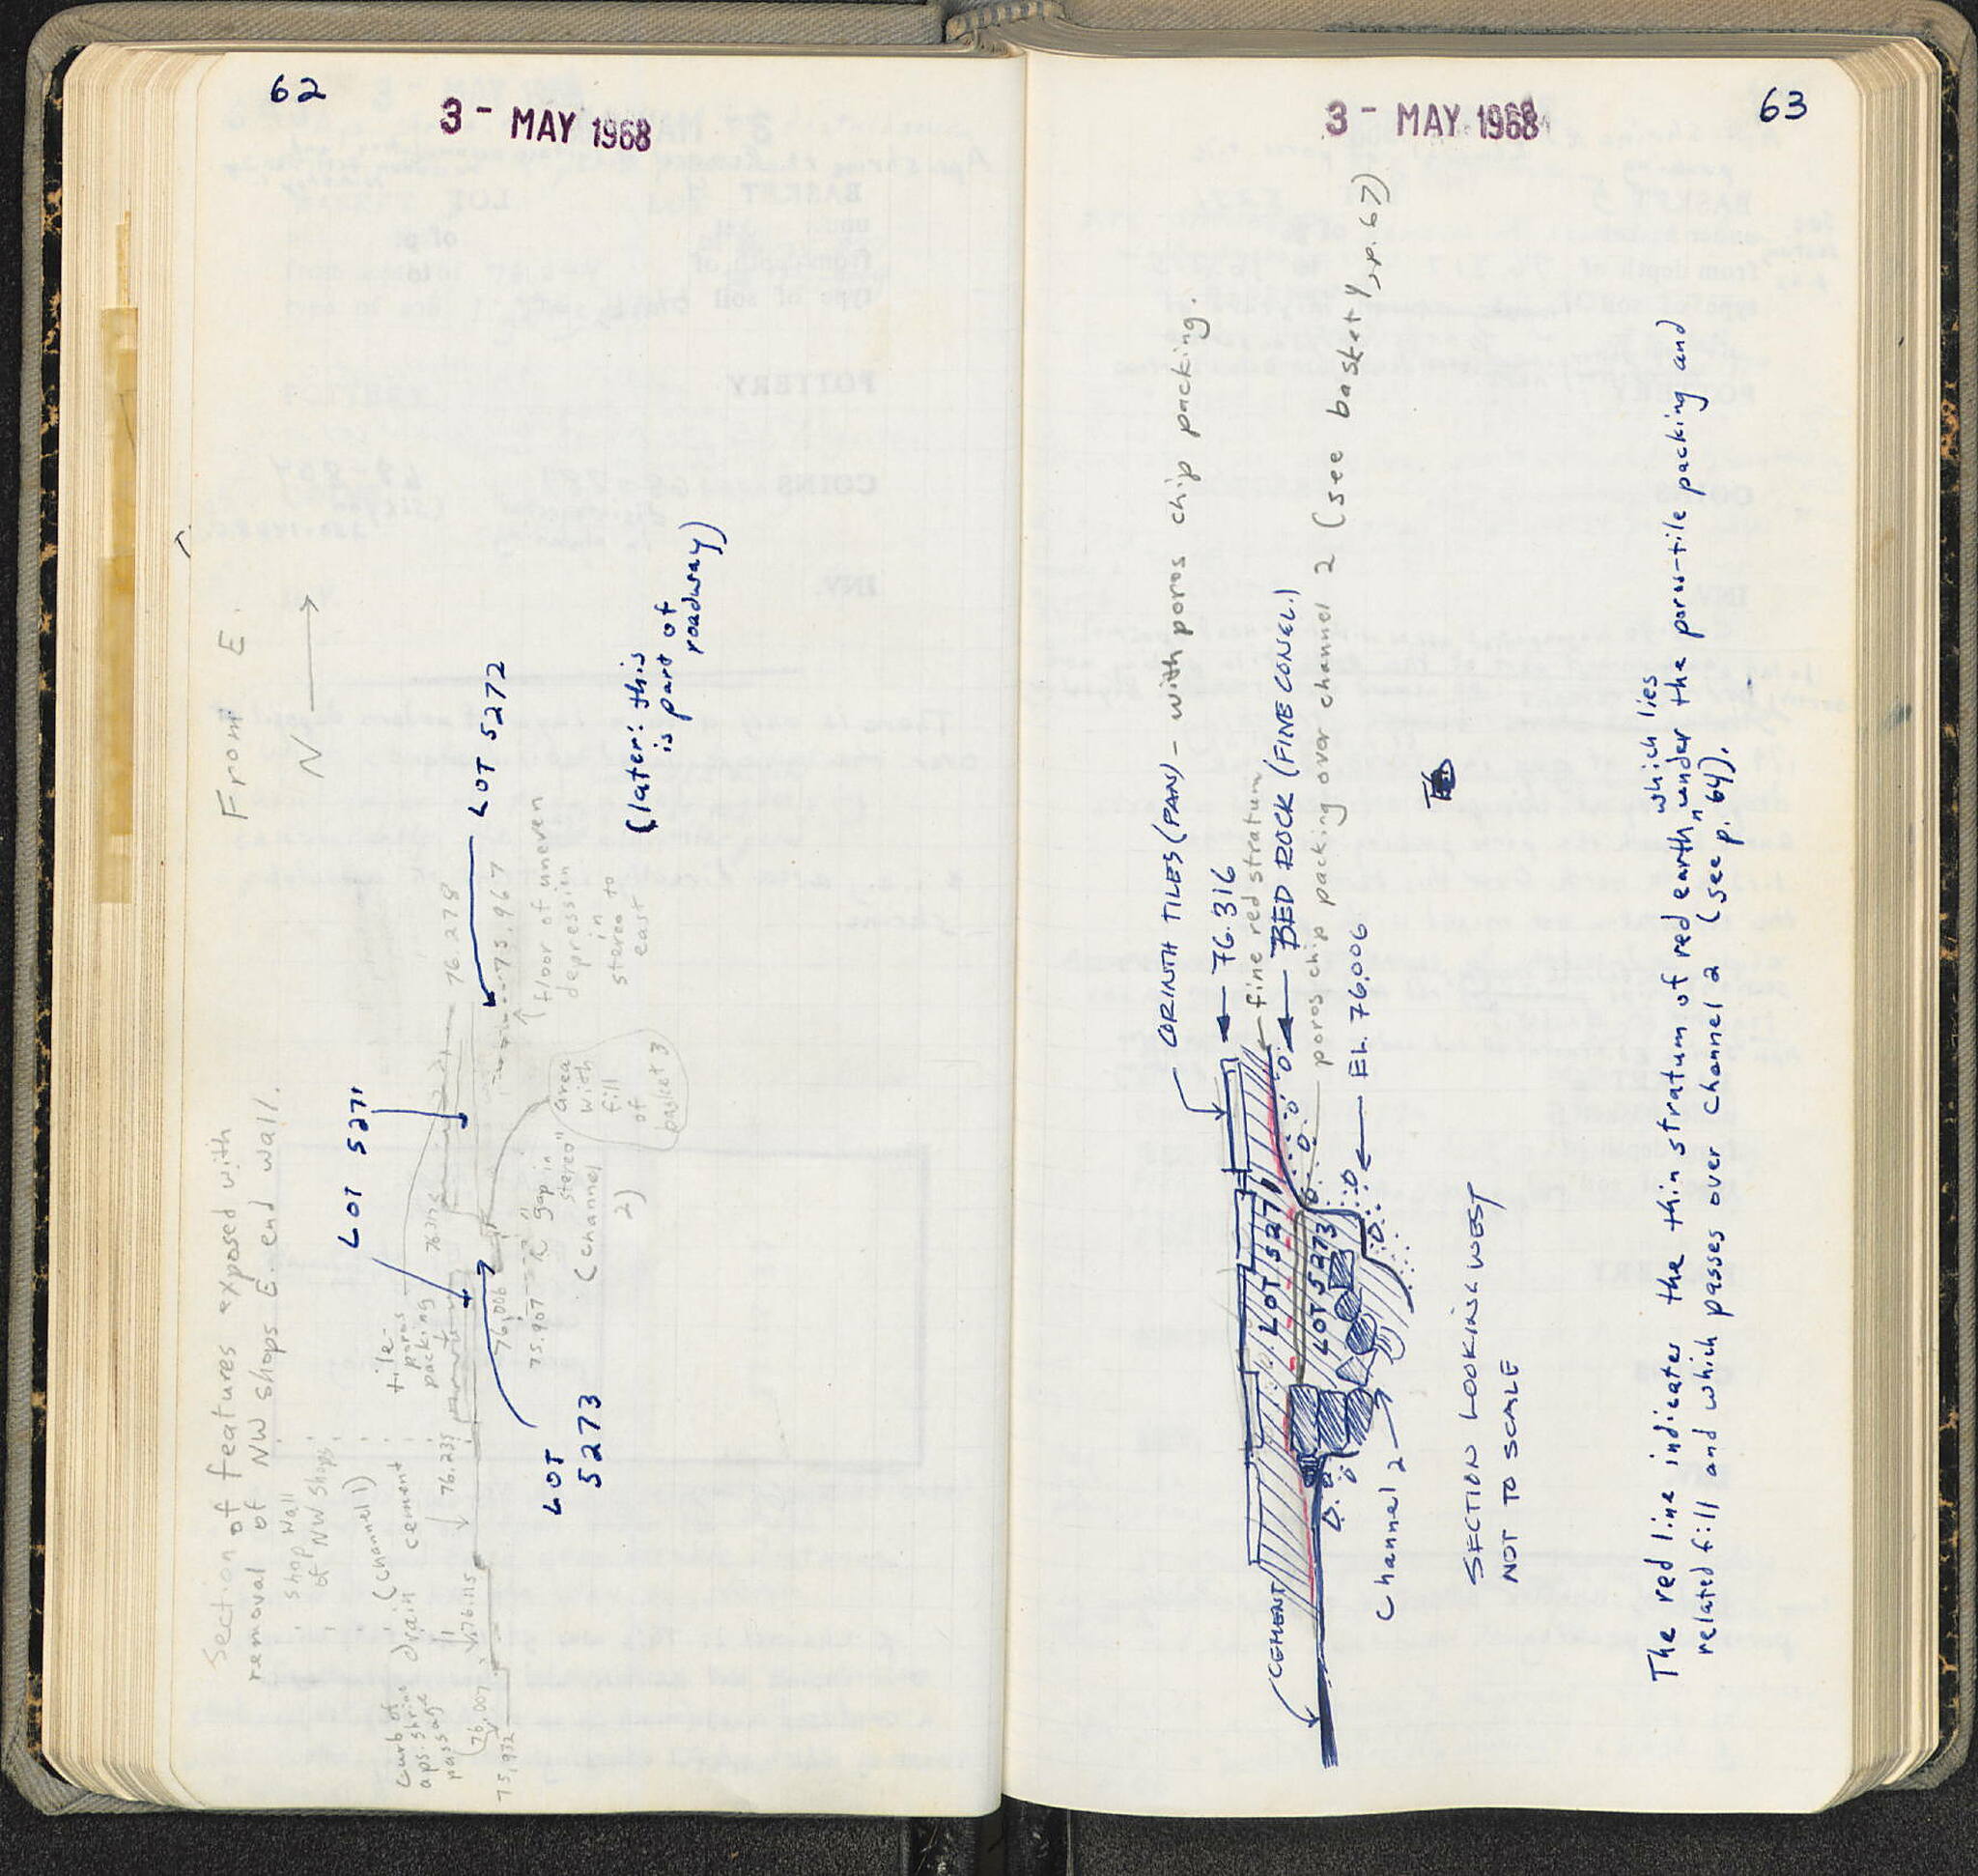 62
3 - MAY 1968
Section of features exposed with
removal of NW shops E end wall.
From E.
N
shop wall
of NW shops
(channel 1)
drain
cement
tile
poros
packing
curb of
aps. shrine
passage
LOT 5271
LOT 5272
LOT
5273
76.278
75.967
76.315
76.235
76.115
76.007
75.932
76.006
75.907
floor of uneven
depression
in
stereo to
east
"gap in
stereo"
(channel
2)
area
with
fill
of
basket 3
(later: this
is part of
roadway)
63
3 - MAY 1968
CORINTH TILES (PAN) - with poros chip packing.
76.316
fine red stratum
BED ROCK (FINE CONGL.)
poros chip packing over channel 2 (see basket 4, p. 67)
EL. 76.006
LOT 5271
LOT 5273
CEMENT
Channel 2
SECTION LOOKING WEST
NOT TO SCALE
The red line indicates the thin stratum of red earth which lies under the poros-tile packing and
related fill and which passes over channel 2 (see p. 64).